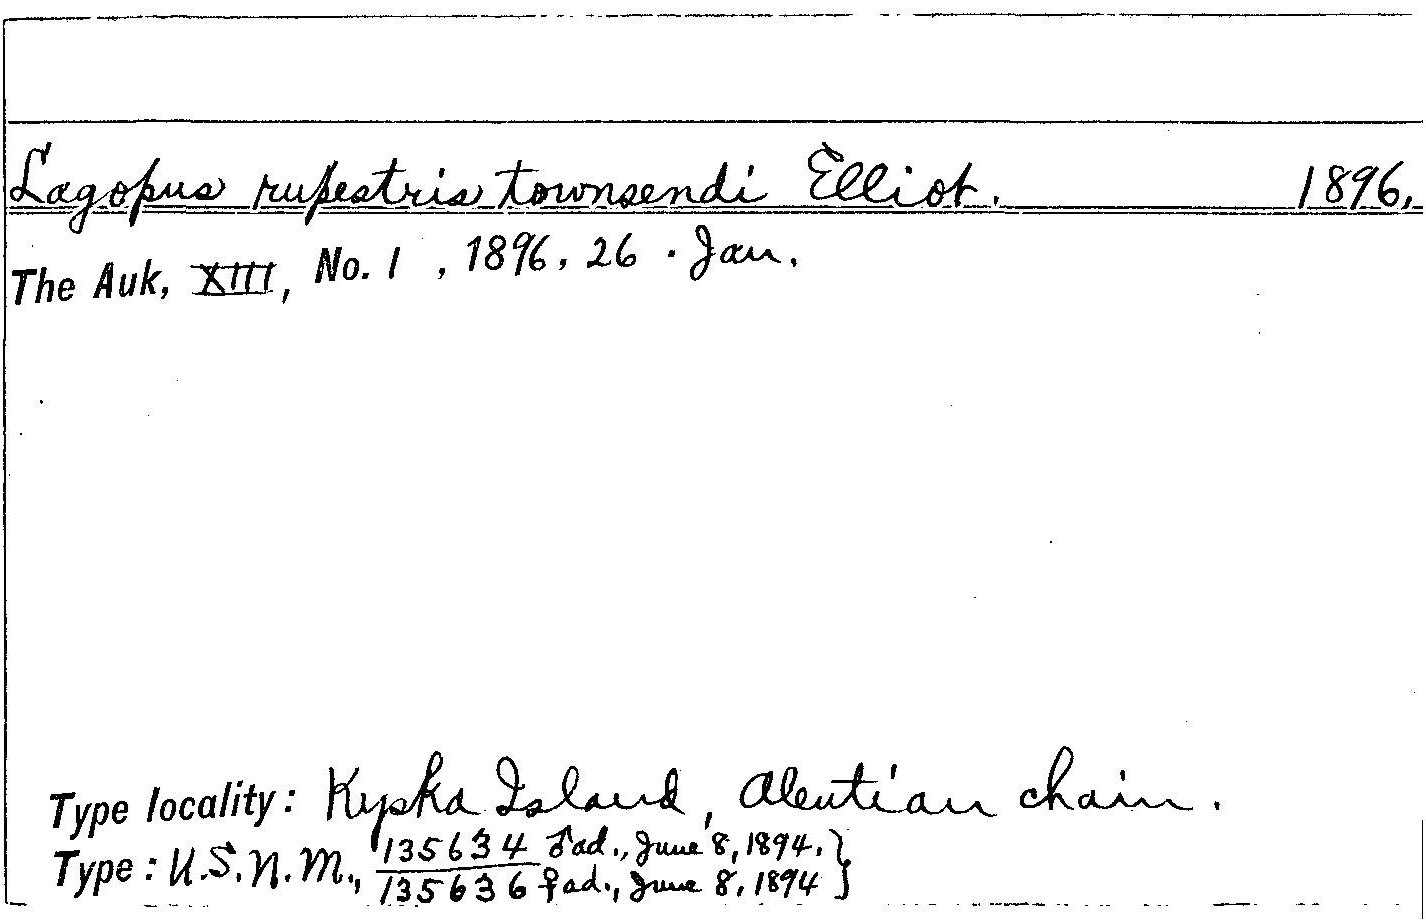 Lagopus rupestris townsendi Elliot. 1896.
The Auk, XIII, No. 1, 1896, 26 . Jan.
Type locality: Kyska Island, Aleutian chain.
Type: U.S.N.M., 135634 ♂ad., June 8, 1894. }
135636 ♀ad., June 8, 1894